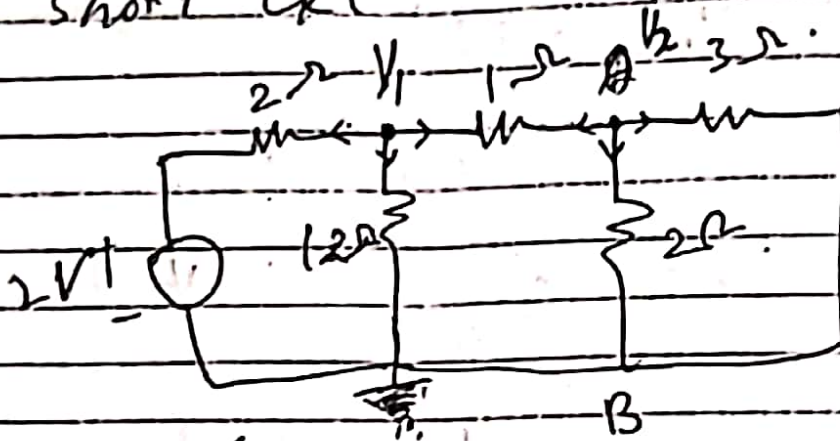 short ckt
2 Ω V1 1 Ω V2 3 Ω
2V +
12Ω
2Ω
-
B